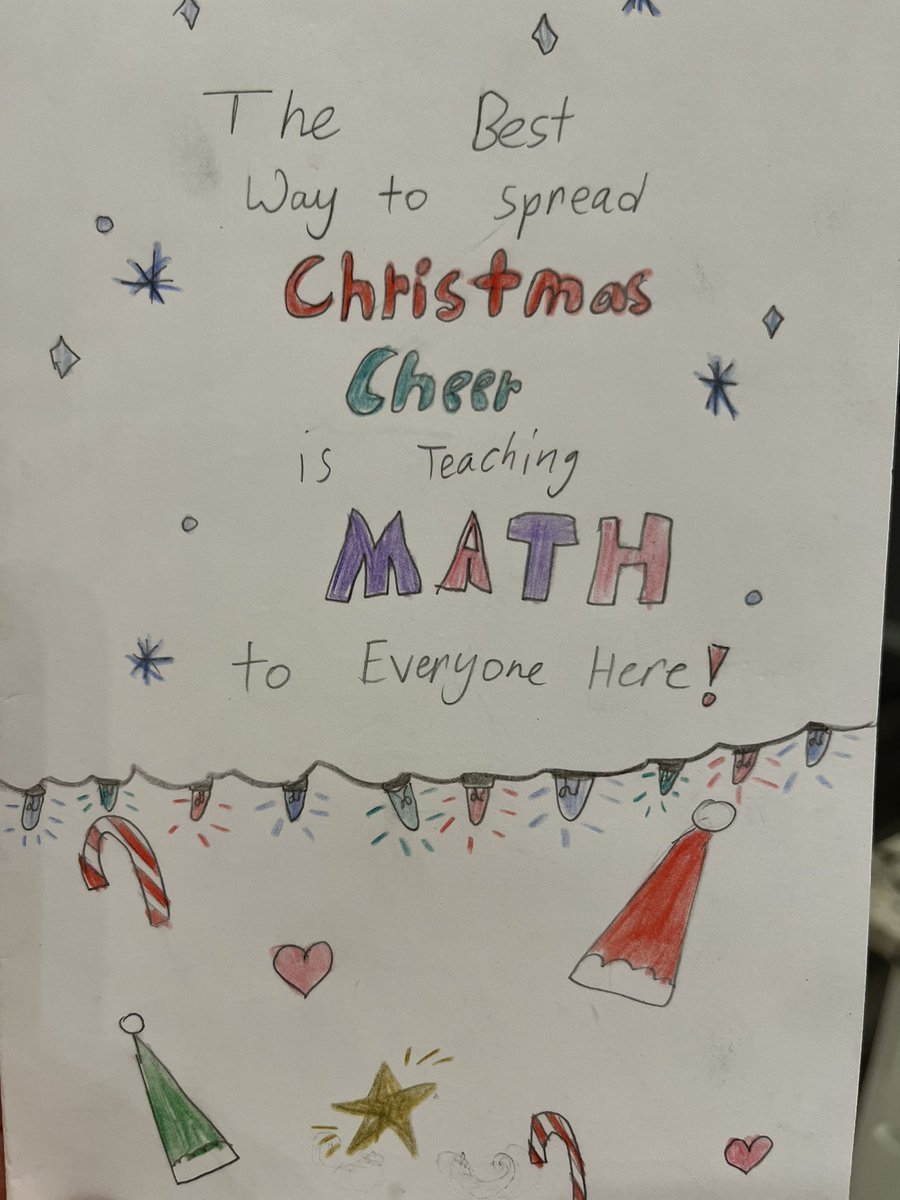 The Best
Way to spread
Christmas
Cheer
is Teaching
MATH
to Everyone Here!